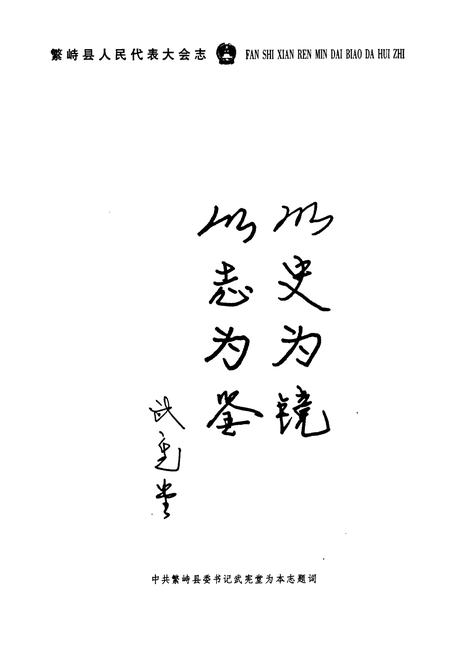 繁峙县人民代表大会志 FAN SHI XIAN REN MIN DAI BIAO DA HUI ZHI
以史为镜
以志为鉴
武宪堂
中共繁峙县委书记武宪堂为本志题词